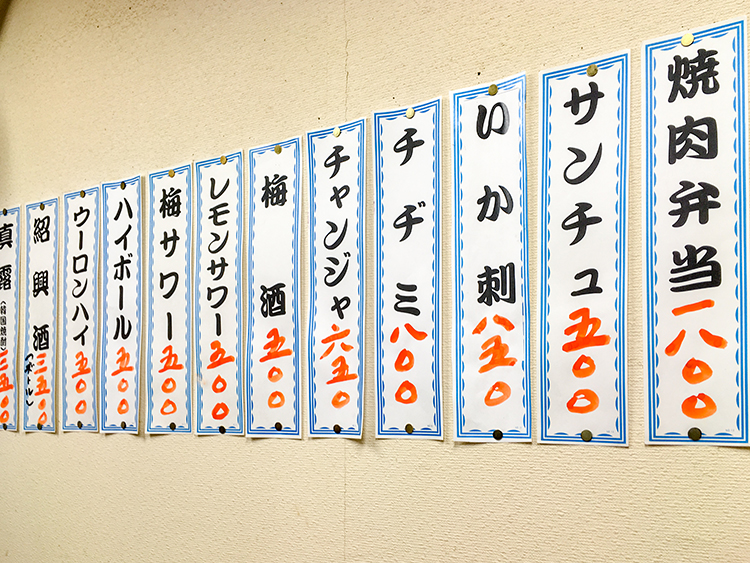 焼肉弁当 一八〇〇
サンチュ 五〇〇
いか刺 八五〇
チヂミ 八〇〇
チャンジャ 六五〇
梅酒 五〇〇
レモンサワー 五〇〇
梅サワー 五〇〇
ハイボール 五〇〇
ウーロンハイ 五〇〇
紹興酒(ボトル) 三五〇〇
真露(韓国焼酎) 三五〇〇